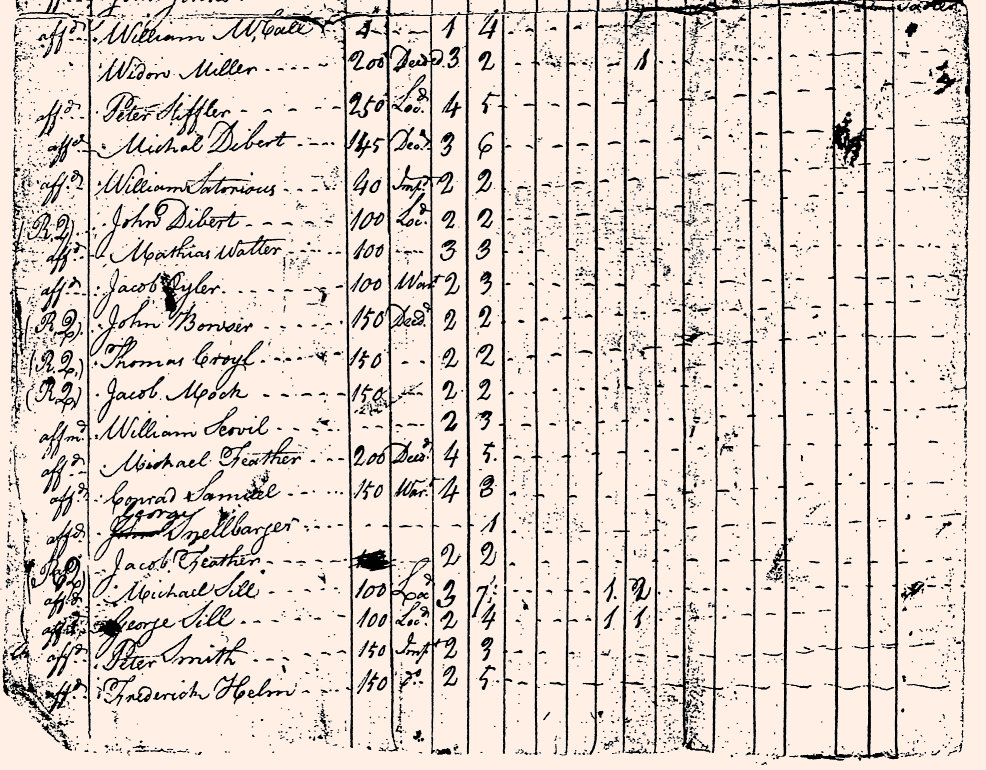 affd. William McCall - - 4 - - - 1 4
Widow Miller - - - 200 Deeded 3 2 - - - 1
affd. Peter Stiffler - - - 250 Locd. 4 5
affd. Michal Dibert - - - 145 Ded. 3 6
affd. William Satorious - - - 40 Impt. 2 2
(R.2) John Dibert - - - - 100 Locd. 2 2
affd. Mathias Walter - - - 100 - - 3 3
affd. Jacob - - - 100 Wart 2 3
(R.2) John Bowser - - - - 150 Deed. 2 2
(R.2.) Thomas Croyl - - - - 150 - - - 2 2
(R.2) Jacob Mock - - - - 150 - - 2 2
affmd. William Scovil - - - - - - - 2 3
affd. Michael Feather - - - 200 Deed. 4 5
affd. Conrad Samuel - - - 150 Wart. 4 3
George
affd. Snellbarger - - - - - - - 1
Jacob Feather - - - 2 2
affd. Michael Sill - - - - 100 3 7 - - - 1 2
George Sill - - - - 100 Locd. 2 4 - - - 1 1
affd. Peter Smith - - - - 150 Impt 2 3
affd. Frederick Helm - - - 150 do. 2 5